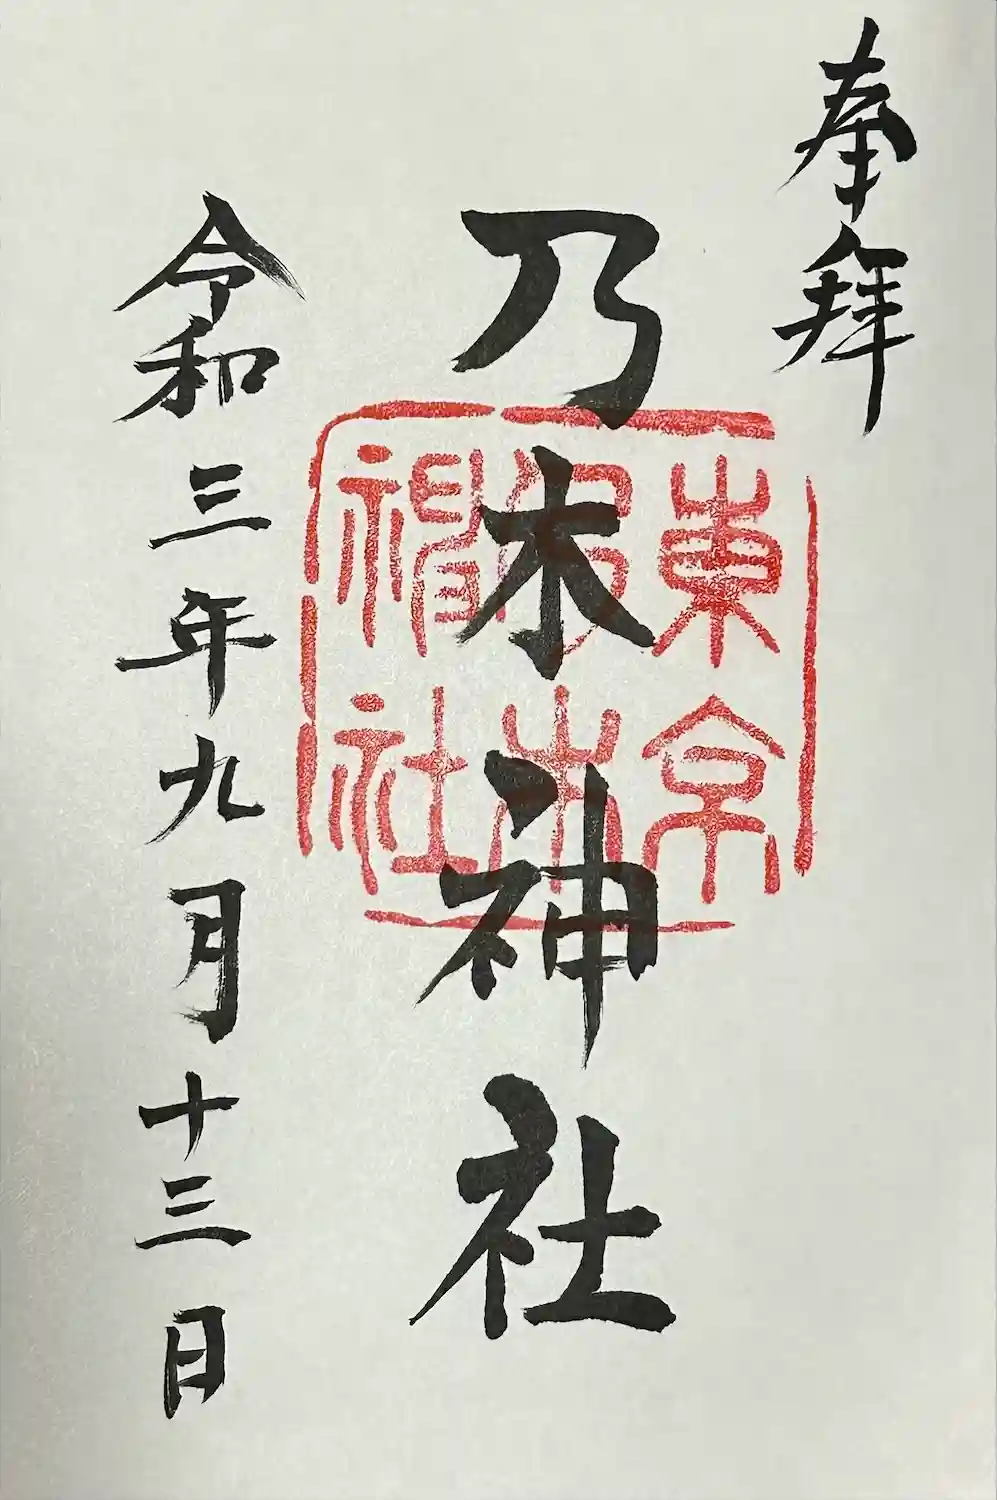 奉拜
乃木神社
東京
乃木
神社
令和三年九月十三日